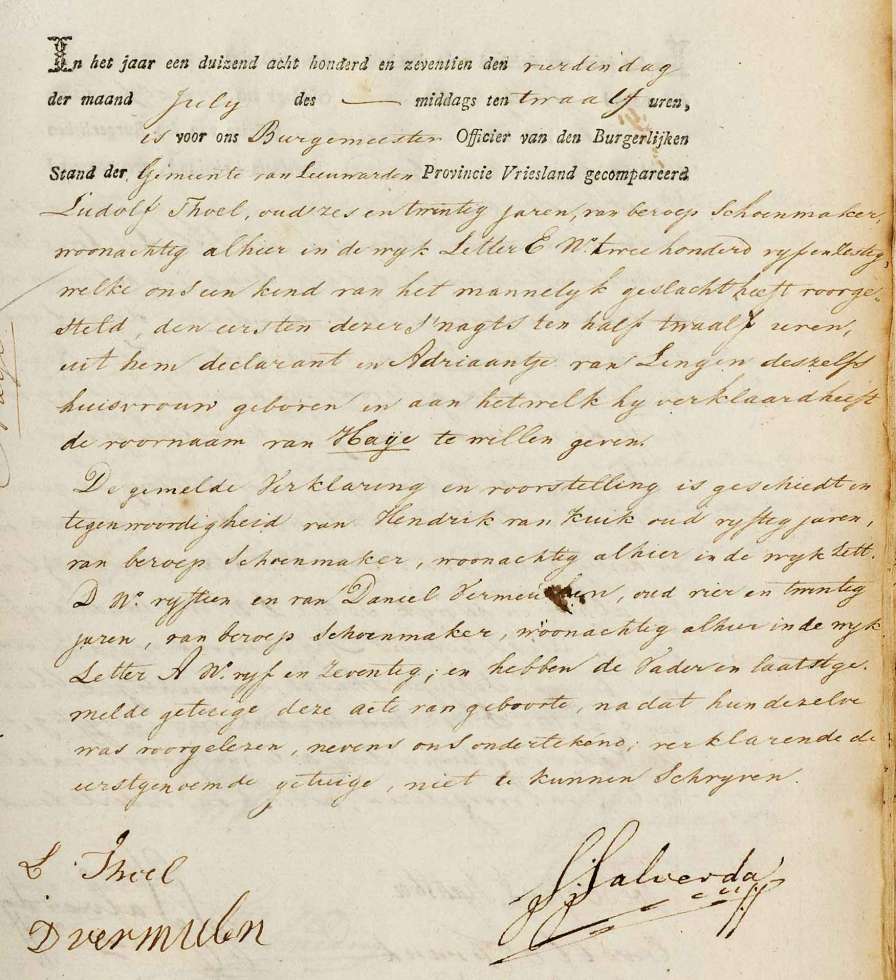 In het jaar een duizend acht honderd en zeventien den vierden dag
der maand July des — middags ten twaalf uren,
is voor ons Burgemeester Officier van den Burgerlijken
Stand der Gemeente van Leeuwarden Provincie Vriesland gecompareerd
Ludolf Thoel, oud zes en twintig jaren, van beroep Schoenmaker,
woonachtig alhier in de wyk Letter E No. twee honderd vyf en Zestig,
welke ons een kend van het mannelyk geslacht heeft voorge-
steld, den eersten dezer S'nagts ten half twaalf uren,
uit hem declarant en Adriaantje van Lingen deszelfs
huisvrouw geboren en aan het welk hy verklaard heeft
de voornaam van Haije te willen geven.
De gemelde Verklaring en voorstelling is geschiedt in
tegenwoordigheid van Hendrik van Kuik oud vyftig jaren,
van beroep Schoenmaker, woonachtig alhier in de wyk Lett.
D No. vyftien en van Daniel Vermeulen, oud vier en twintig
jaren, van beroep Schoenmaker, woonachtig alhier in de wyk
Letter A No. vyf en Zeventig; en hebben de Vader en laatstge-
melde getuige deze acte van geboorte, na dat hun dezelve
was voorgelezen, nevens ons ondertekend; verklarende de
eerstgenoemde getuige, niet te kunnen Schryven.
L Thoel
D vermulen
Salverda